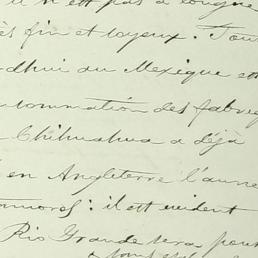 n'est pas à
ès fin et soyeux. Tou
rdhui au Mexique et
nsommation des fabriq
Chihuahua a déjà
en Angleterre l'anne
: il est évident
Rio Grande sera pou